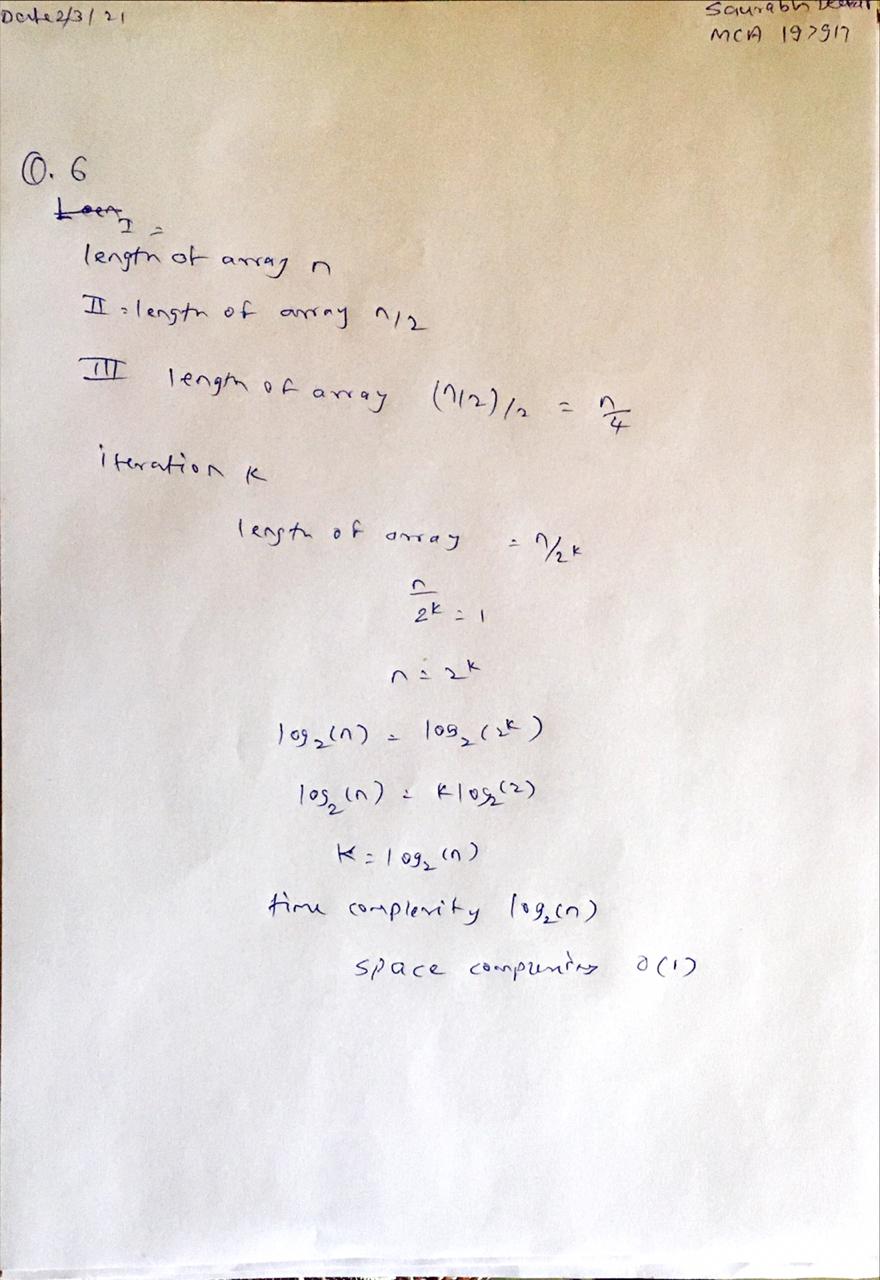 Date 2/3/21
Saurabh
MCA 197917
Q. 6
I =
length of array n
II = length of array n/2
III length of array (n/2)/2 = n/4
iteration k
length of array = n/2^k
n/2^k = 1
n = 2^k
log₂(n) = log₂(2^k)
log₂(n) = k log₂(2)
k = log₂(n)
time complexity log₂(n)
space complexity O(1)